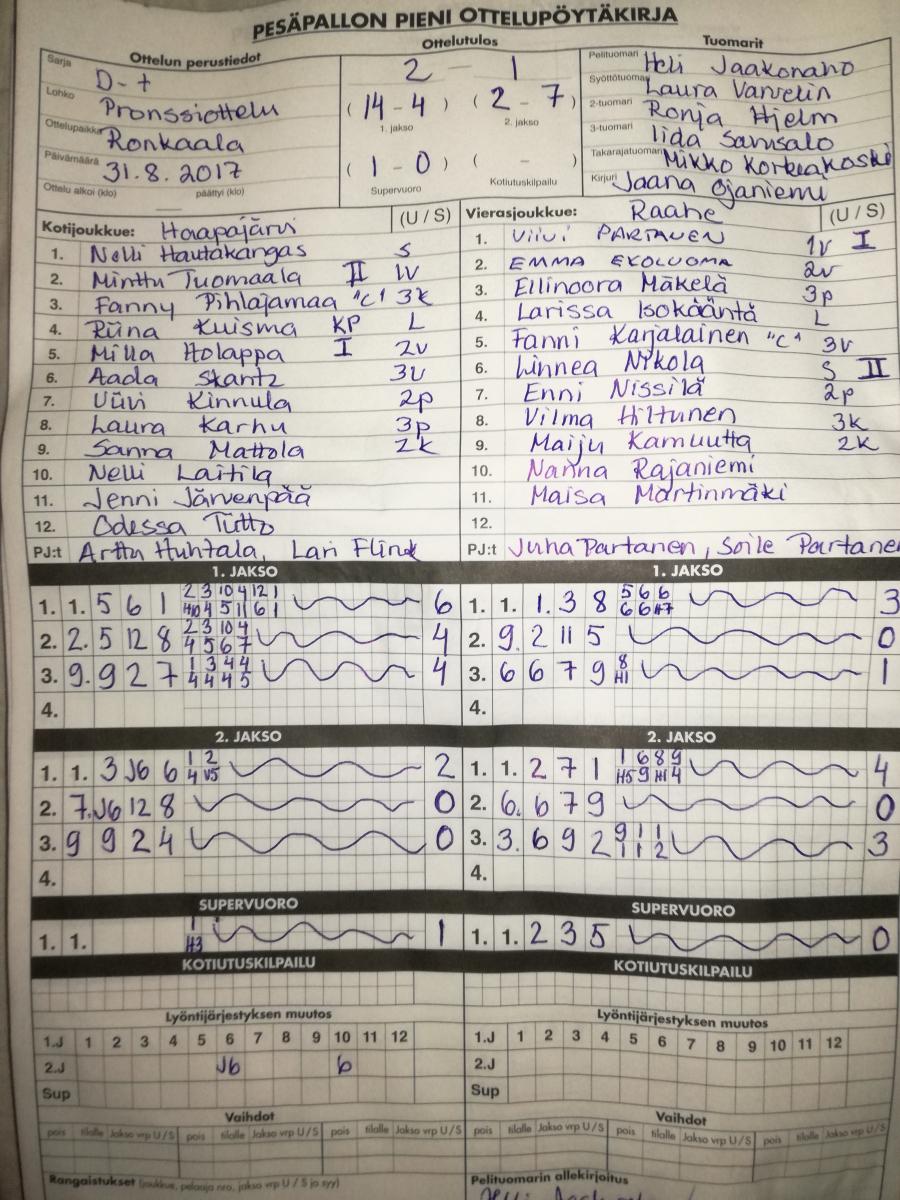 PESÄPALLON PIENI OTTELUPÖYTÄKIRJA
Ottelun perustiedot
Sarja D-t
Lohko Pronssiottelu
Ottelupaikka Ronkaala
Päivämäärä 31.8.2017
Ottelu alkoi (klo) päättyi (klo)
Ottelutulos
2 — 1
(14 - 4) (2 - 7)
1. jakso 2. jakso
(1 - 0) ( - )
Supervuoro Kotiutuskilpailu
Tuomarit
Pelituomari Heli Jaakonaho
Syöttötuomari Laura Varvelin
2-tuomari Ronja Hjelm
3-tuomari Iida Samsalo
Takarajatuomari Mikko Korkeakoski
Kirjuri Jaana Ojaniemi
Kotijoukkue: Haapajärvi (U / S)
1. Nelli Hautakangas S
2. Minttu Tuomaala II 1v
3. Fanny Pihlajamaa "C" 3k
4. Riina Kuisma KP L
5. Milla Holappa I 2v
6. Aada Skantz 3v
7. Viivi Kinnula 2p
8. Laura Karhu 3p
9. Sanna Mattola 2k
10. Nelli Laitila
11. Jenni Järvenpää
12. Odessa Tiitto
PJ:t Arttu Huhtala, Lari Flink
Vierasjoukkue: Raahe (U / S)
1. VIIVI PARTANEN 1v I
2. EMMA EKOLUOMA 2v
3. Ellinoora Mäkelä 3p
4. Larissa Isokääntä L
5. Fanni Karjalainen "C" 3v
6. Linnea Nikola S II
7. Enni Nissilä 2p
8. Vilma Hiltunen 3k
9. Maiju Kamuutta 2k
10. Nanna Rajaniemi
11. Maisa Martinmäki
12.
PJ:t Juha Partanen, Soile Partanen
1. JAKSO
1. 1. 5 6 1 2 3 10 4 12 1 6
H10 4 5 11 6 1
2. 2. 5 12 8 2 3 10 4 4
4 5 6 7
3. 9. 9 2 7 1 3 4 4 4
4 4 4 5
4.
1. JAKSO
1. 1. 1. 3 8 5 6 6 3
6 6 H7
2. 9. 2 11 5 0
3. 6 6 7 9 8 1
H1
4.
2. JAKSO
1. 1. 3 J6 6 1 2 2
4 V5
2. 7. J6 12 8 0
3. 9 9 2 4 0
4.
2. JAKSO
1. 1. 2 7 1 1 6 8 9 4
H5 9 H1 4
2. 6. 6 7 9 0
3. 3. 6 9 2 9 1 1 3
1 1 2
4.
SUPERVUORO
1. 1. 1 1
H3
SUPERVUORO
1. 1. 2 3 5 0
KOTIUTUSKILPAILU
KOTIUTUSKILPAILU
Lyöntijärjestyksen muutos
1.J 1 2 3 4 5 6 7 8 9 10 11 12
2.J J6 6
Sup
Lyöntijärjestyksen muutos
1.J 1 2 3 4 5 6 7 8 9 10 11 12
2.J
Sup
Vaihdot
pois tilalle Jakso vrp U / S pois tilalle Jakso vrp U / S pois tilalle Jakso vrp U / S
Vaihdot
pois tilalle Jakso vrp U / S pois tilalle Jakso vrp U / S pois tilalle Jakso vrp U / S
Rangaistukset (joukkue, pelaaja nro, jakso vrp U / S ja syy)
Pelituomarin allekirjoitus